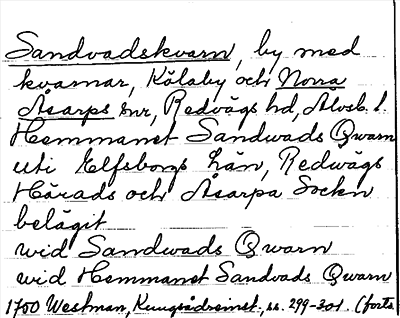 Sandvadskvarn, by med
kvarnar, Kölaby och Norra
Åsarps snr, Redvägs hd, Älvsb. l.
Hemmanet Sandwads Qwarn
uti Elfsborgs Län, Redwägs
Härads och Åsarpa Sockn
belägit
wid Sandwads Qwarn
wid Hemmanet Sandvads Qwarn
1700 Westman, Kungsådreinst., ss. 299-301. (forts.